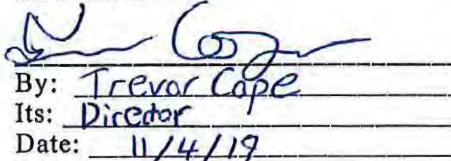 By: Trevor Cape
Its: Director
Date: 11/4/19